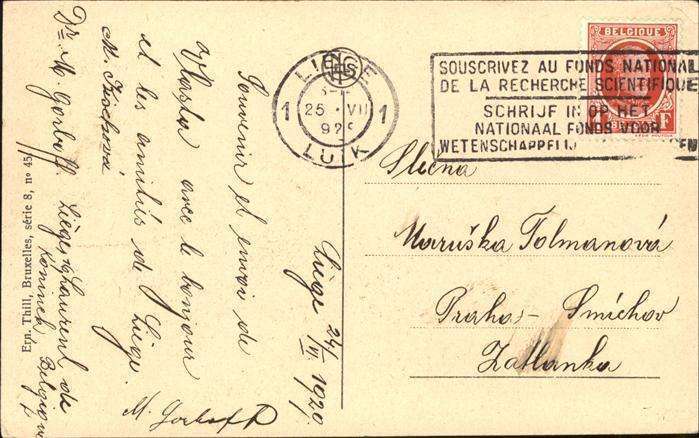 Liège 24/VII 1929
Souvenir et envoi de
Vlasta avec le bonjour
et les amitiés de Liège.
M. Gorboff
Dr. M. Gorboff Liège St Laurent
Belgique
Ern. Thill, Bruxelles, série 8, nº 45
LIEGE
1 25 VII 1
929
LUIK
SOUSCRIVEZ AU FONDS NATIONAL
DE LA RECHERCHE SCIENTIFIQUE
SCHRIJF IN OP HET
NATIONAAL FONDS VOOR
WETENSCHAPPELIJ EN
BELGIQUE
1 F
Slečna
Maruška Tolmanová
Praha - Smíchov
Zatlanka